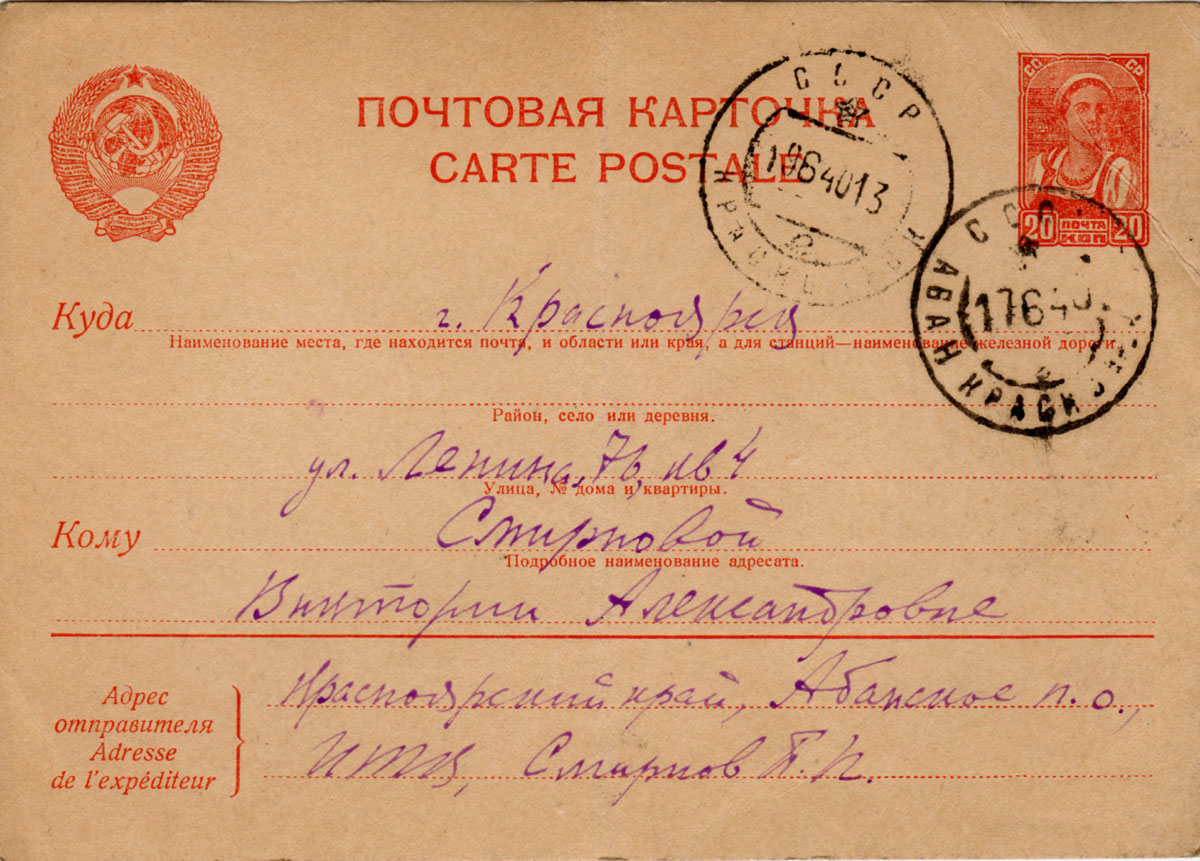 ПОЧТОВАЯ КАРТОЧКА
CARTE POSTALE
СССР
1964013
2
СС СР
20 ПОЧТА КОП 20
17640
АБАН КРАСНО
Куда г. Красноярск
Наименование места, где находится почта, и области или края, а для станций—наименование железной дороги.
Район, село или деревня.
ул. Ленина, 76, кв 4
Улица, № дома и квартиры.
Кому Смирновой
Подробное наименование адресата.
Виктории Александровне
Адрес
отправителя
Adresse
de l'expéditeur
Красноярский край, Абанское п.о.,
Смирнов